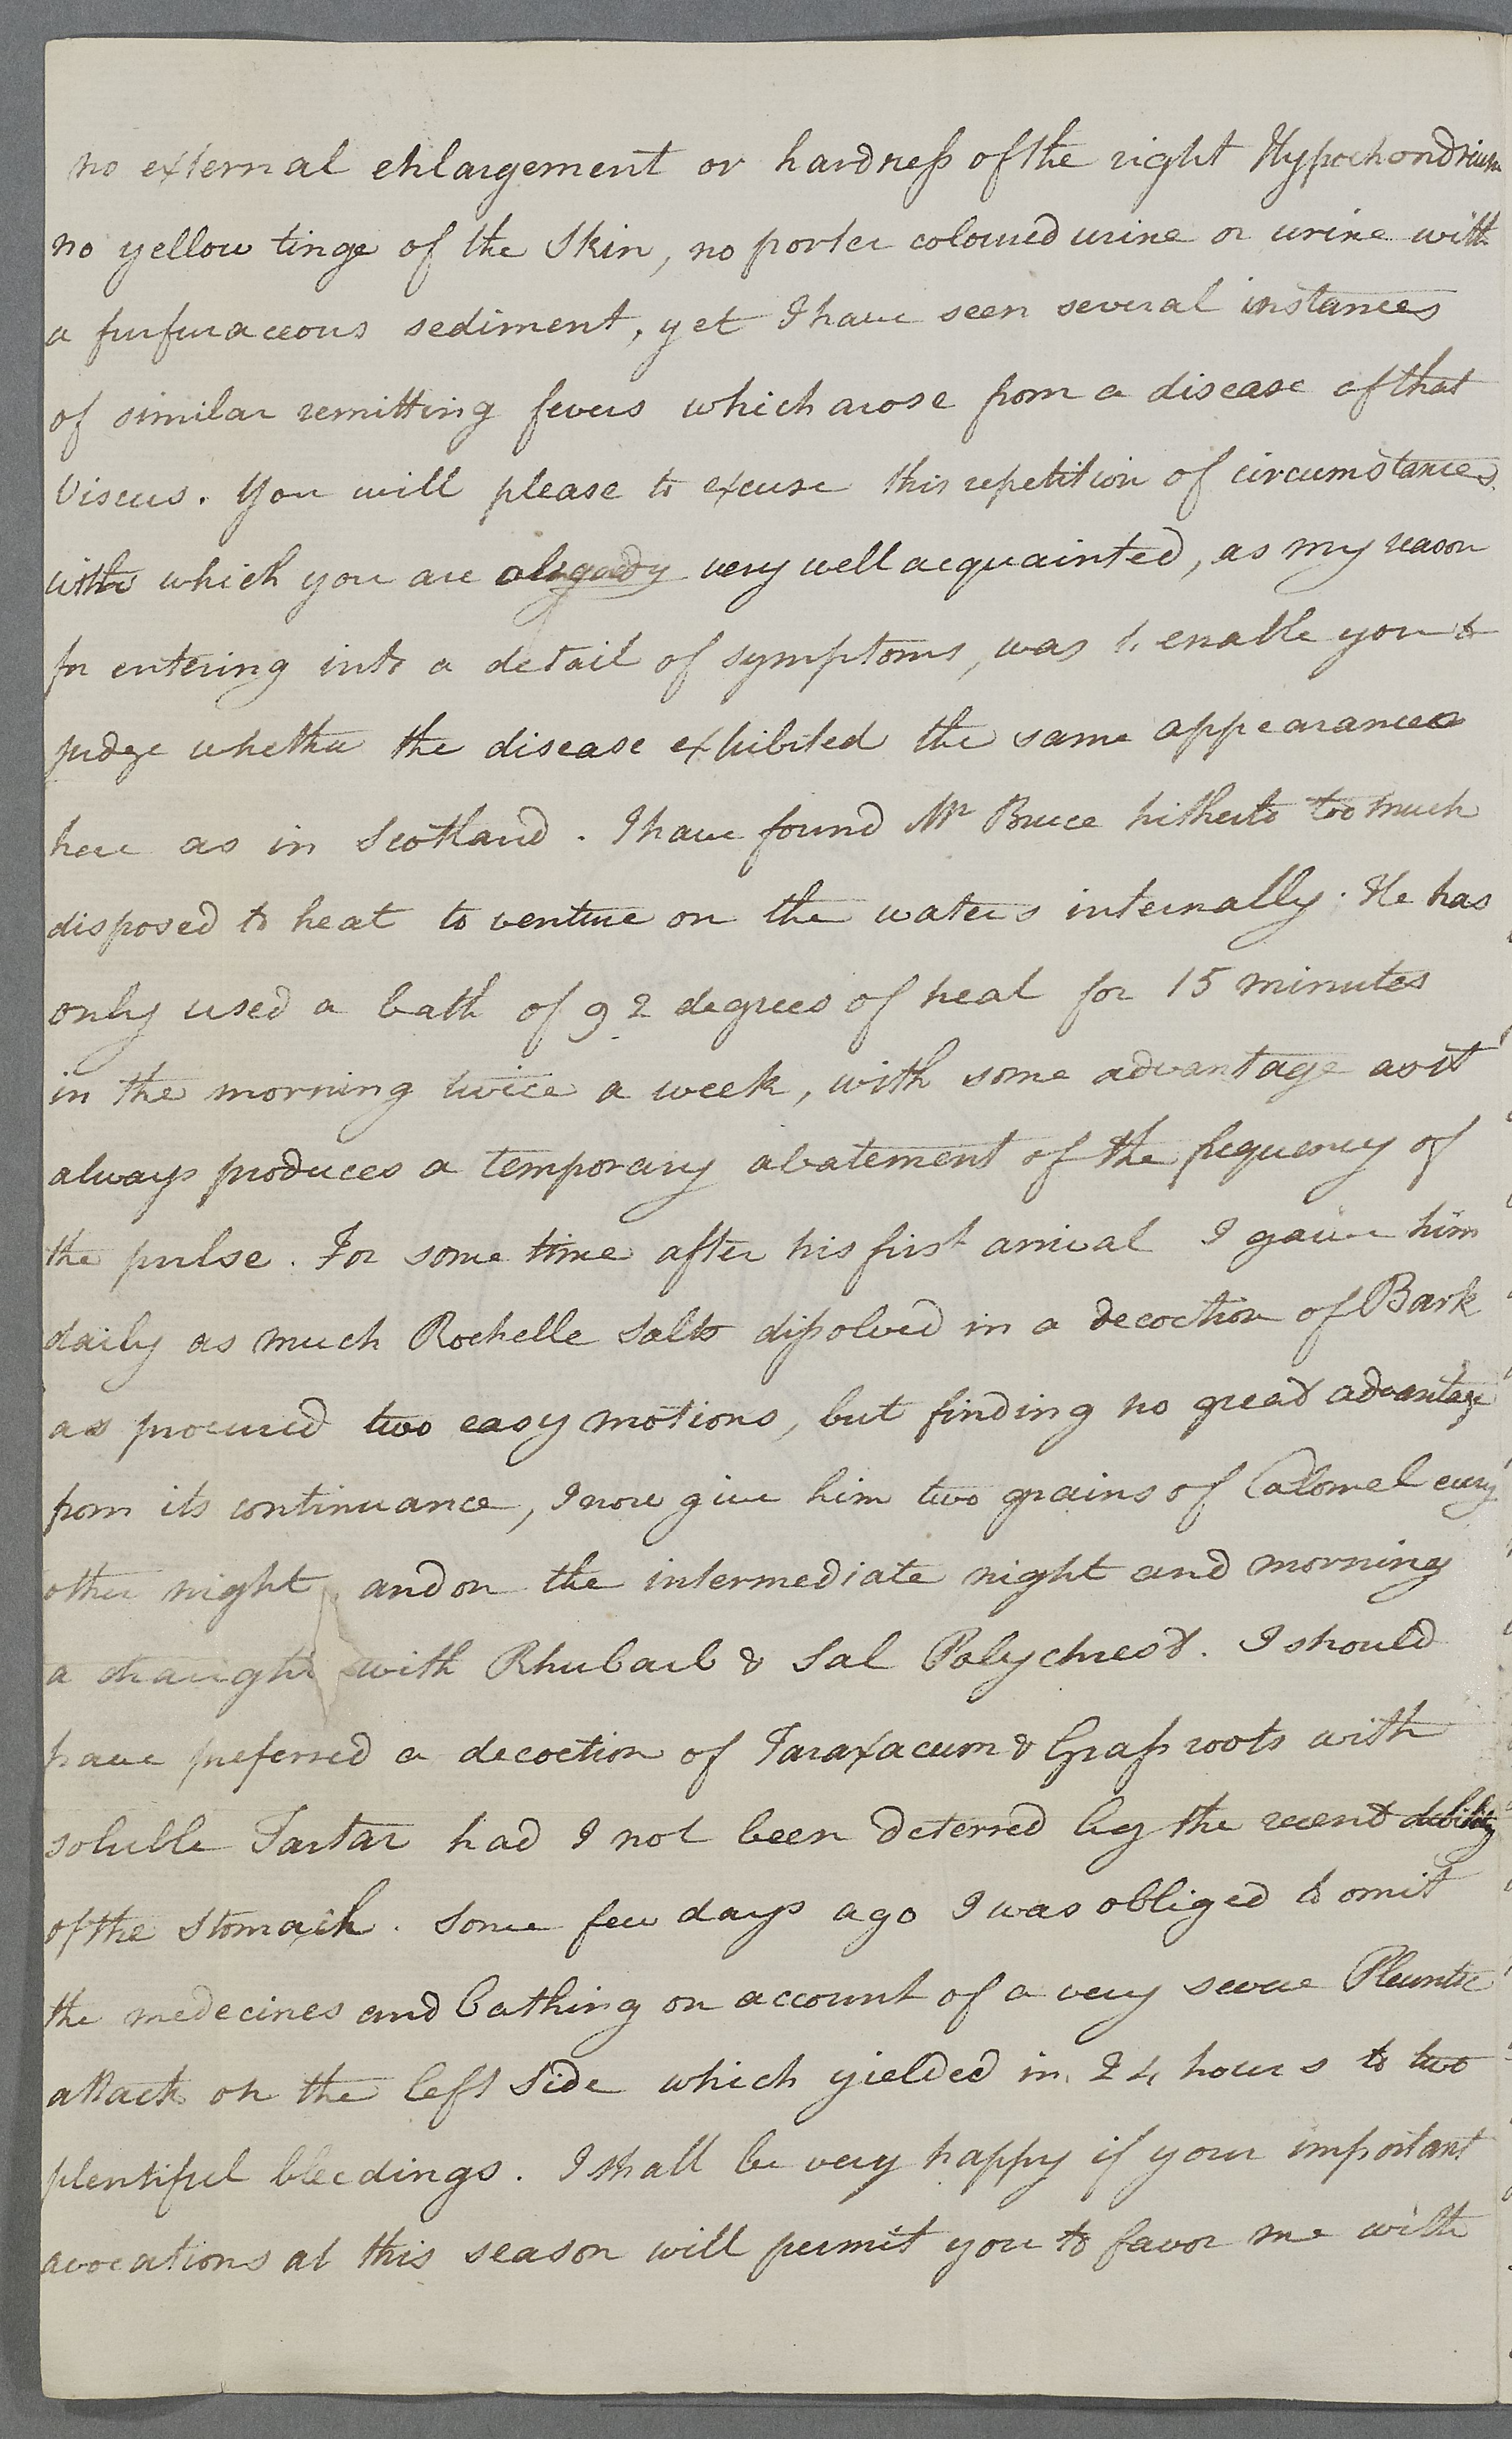 no external enlargement or hardness of the right Hypochondrium
no yellow tinge of the Skin, no porter coloured urine or urine with
a furfuraceous sediment, yet I have seen several instances
of similar remitting fevers which arose from a disease of that
Viscus. You will please to excuse this repetition of circumstances
with which you are already very well acquainted, as my reason
for entering into a detail of symptoms, was to enable you to
judge whether the disease exhibited the same appearances
here as in Scotland. I have found Mr Bruce hitherto too much
disposed to heat to venture on the waters internally. He has
only used a bath of 92 degrees of heat for 15 minutes
in the morning twice a week, with some advantage as it
always produces a temporary abatement of the frequency of
the pulse. For some time after his first arrival I gave him
daily as much Rochelle Salts dissolved in a decoction of Bark
as procured two easy motions, but finding no great advantage
from its continuance, I now give him two grains of Calomel every
other night, and on the intermediate night and morning
a draught with Rhubarb & Sal Polychrest. I should
have preferred a decoction of Taraxacum & Grass roots with
soluble Tartar had I not been deterred by the recent debility
of the Stomach. Some few days ago I was obliged to omit
the medecines and bathing on account of a very severe Pleuritic
attack on the left Side which yielded in 24 hours to two
plentiful bleedings. I shall be very happy if your important
avocations at this season will permit you to favor me with